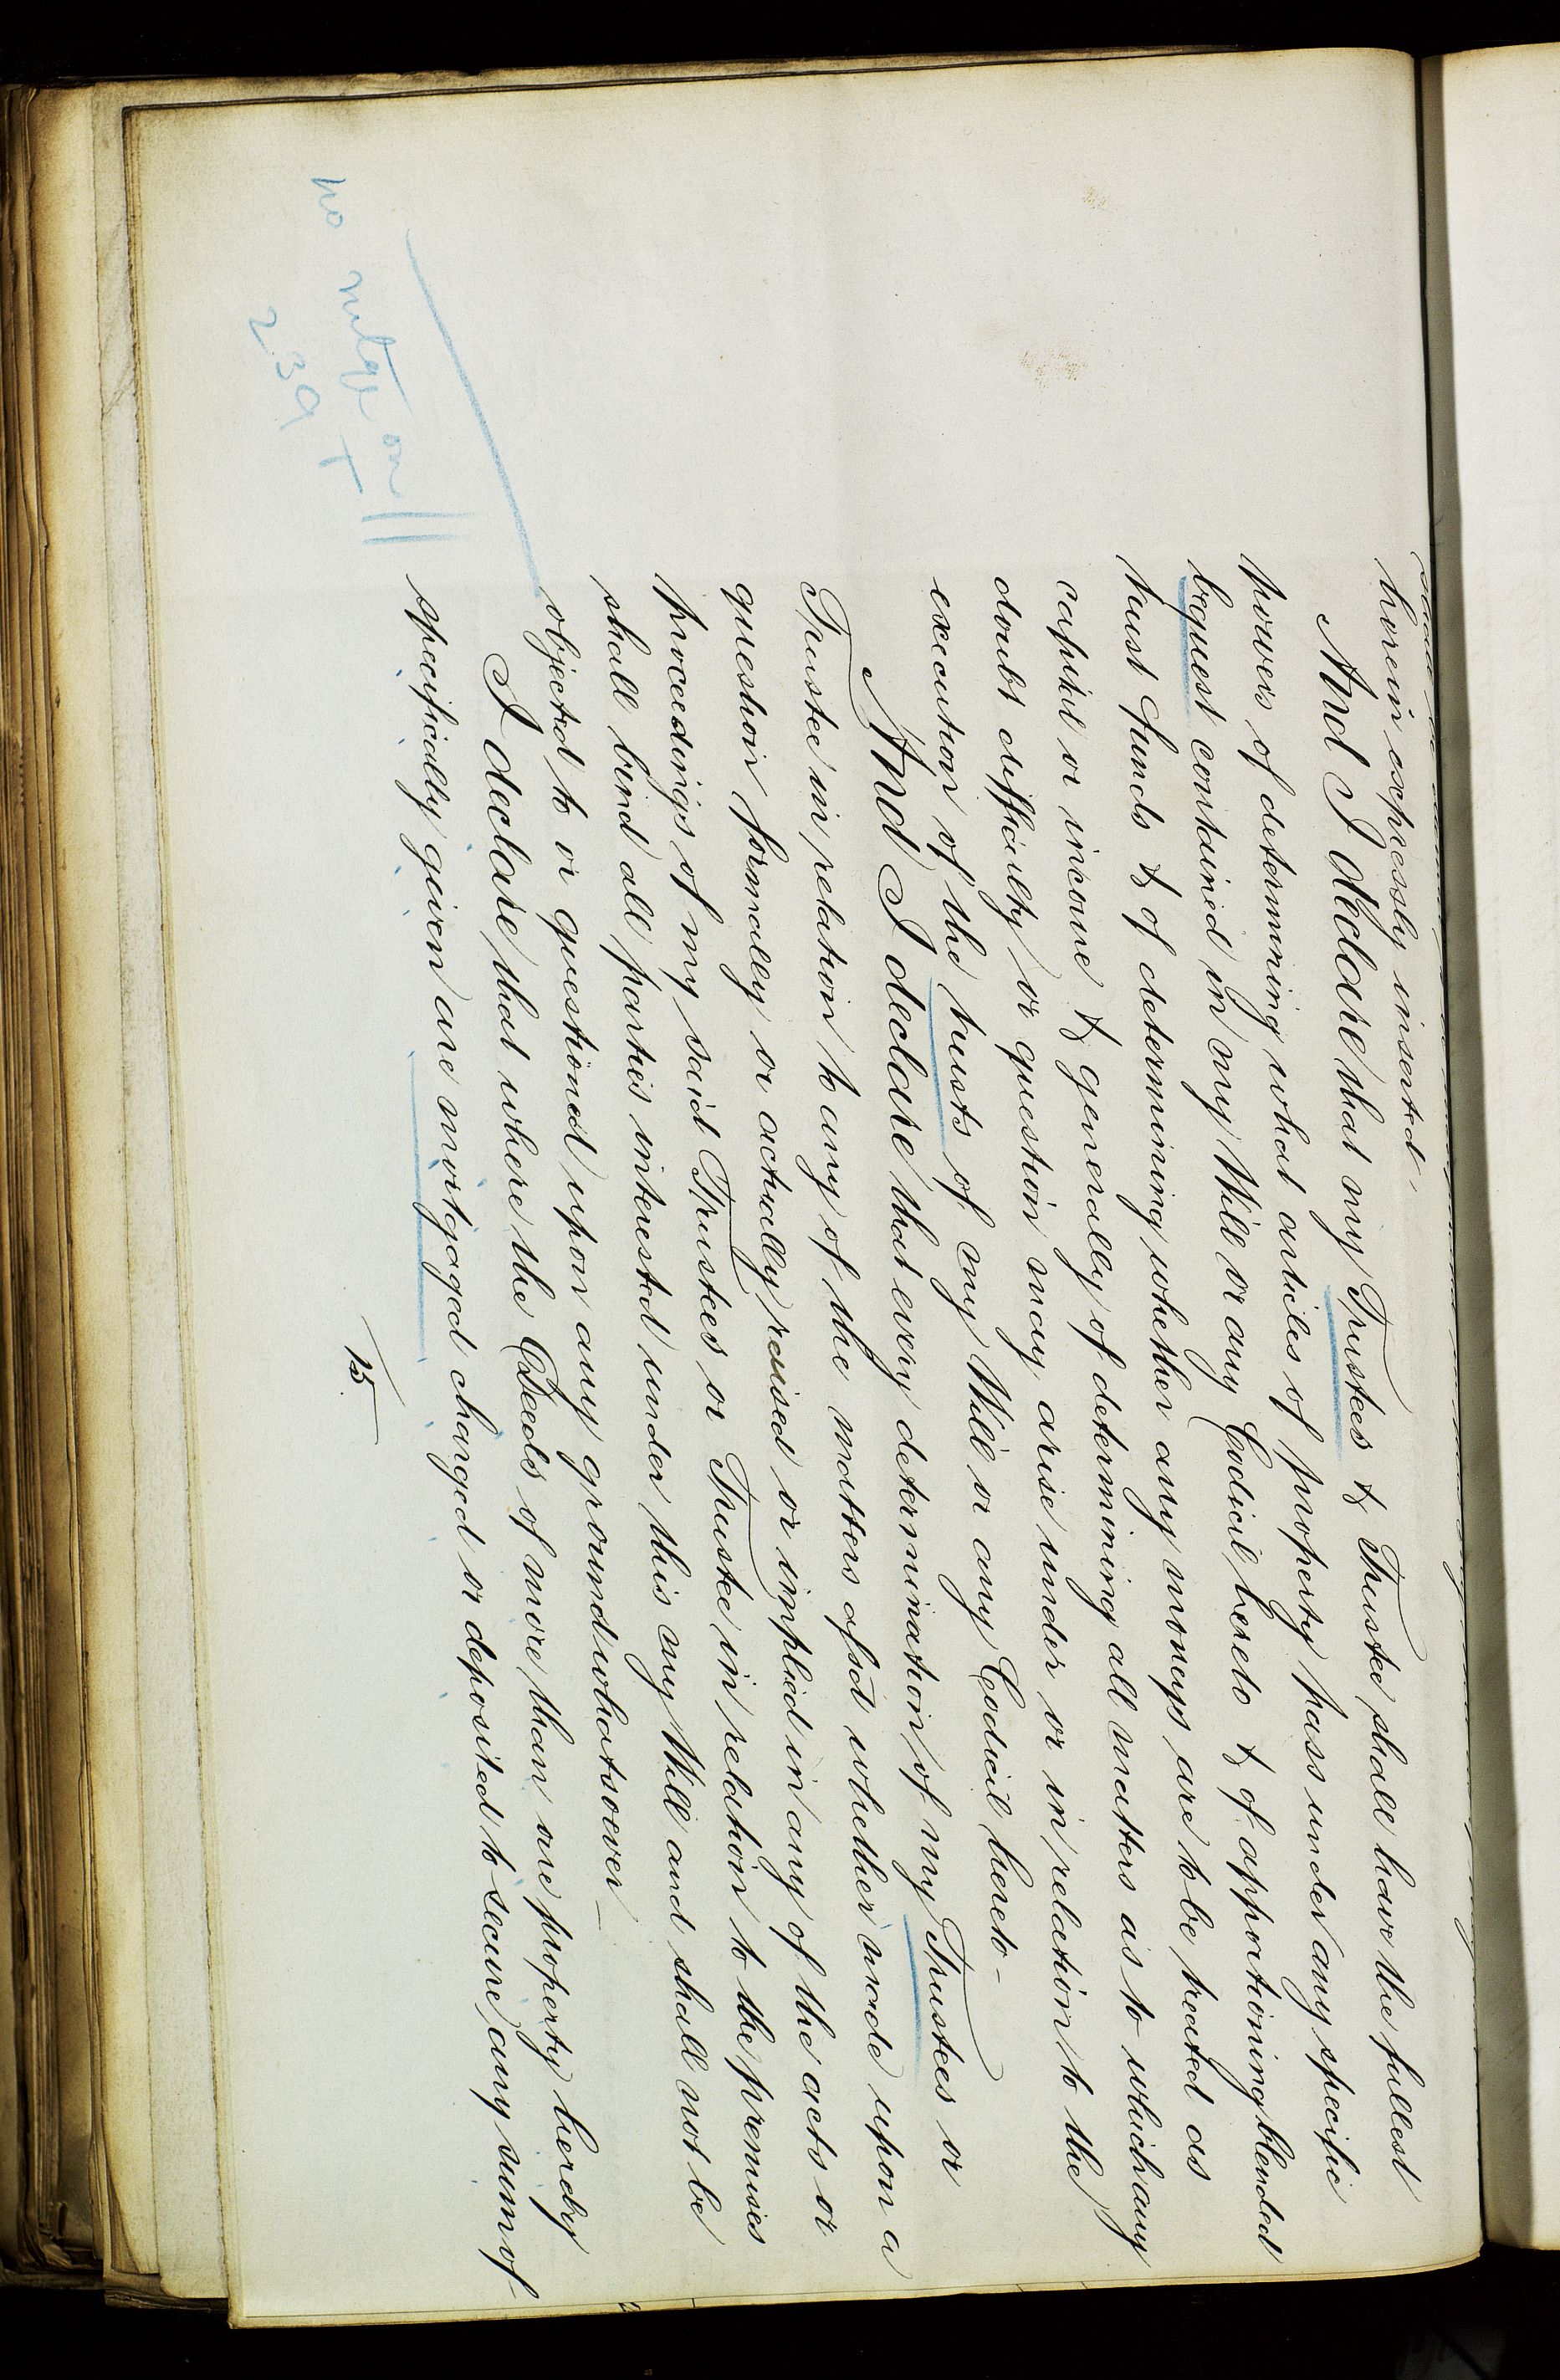 herein expressly inserted -
And I declare that my Trustees & Trustee shall have the fullest
power of determining what articles of property pass under any specific
bequest contained in my Will or any Codicil hereto & of apportioning blended
trust funds & of determining whether any moneys are to be treated as
capital or income & generally of determining all matters as to which any
doubt difficulty or question may arise under or in relation to the
execution of the trusts of my Will or any Codicil hereto -
And I declare that every determination of my Trustees or
Trustee in relation to any of the matters afsd whether made upon a
question formally or actually raised or implied in any of the acts or
proceedings of my said Trustees or Trustee in relation to the premises
shall bind all parties interested under this my Will and shall not be
objected to or questioned upon any ground whatsoever -
I declare that where the Deeds of more than one property hereby
specifically given are mortgaged charged or deposited to secure any sum of
15
no mtge on
239